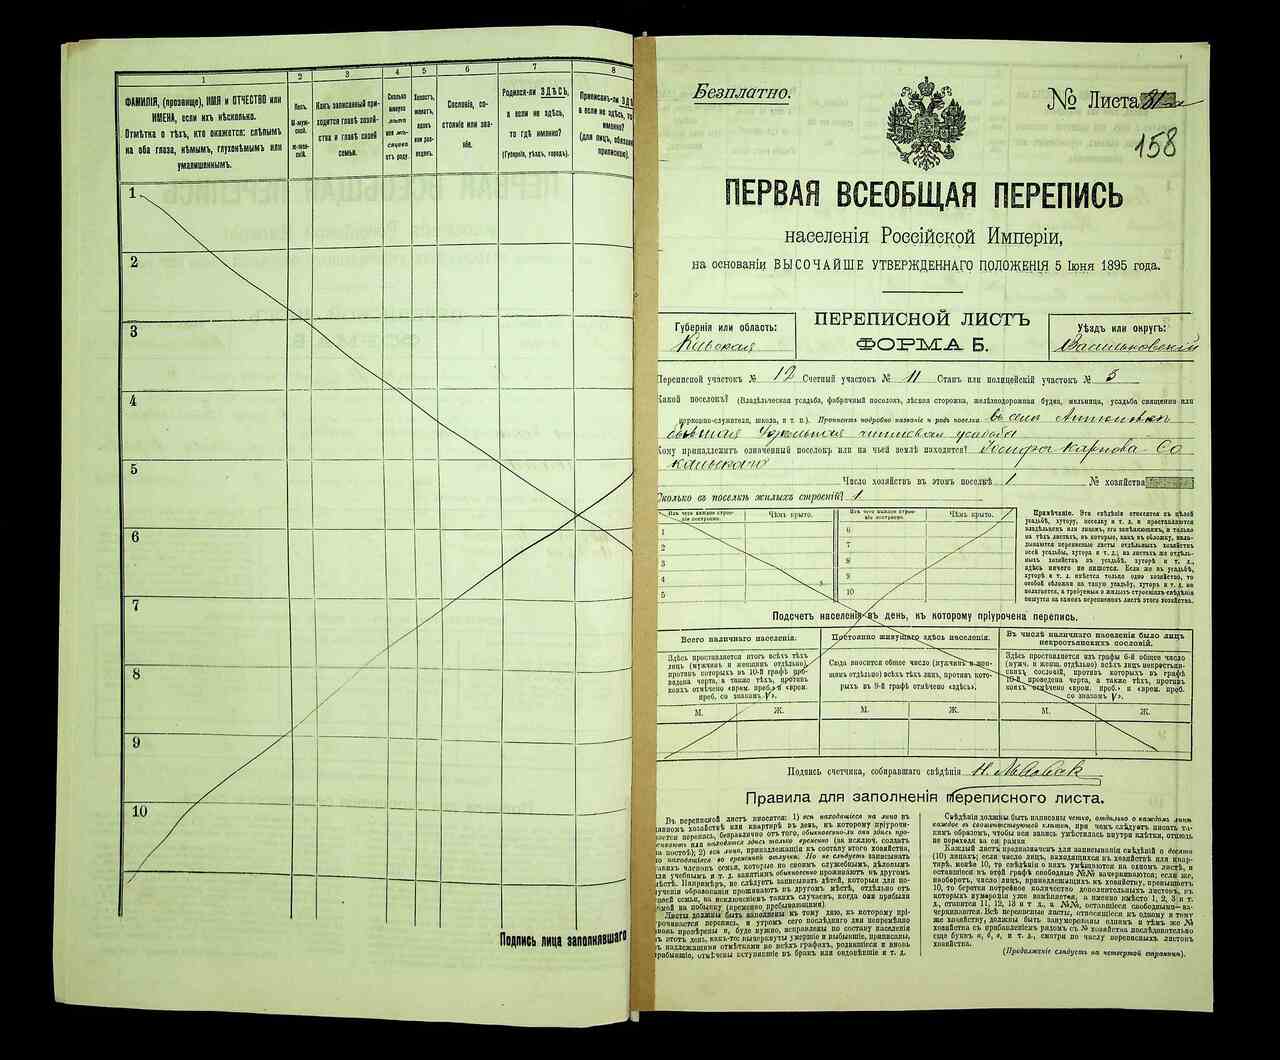 1 2 3 4 5 6 7 8
ФАМИЛІЯ, (прозвище), ИМЯ и ОТЧЕСТВО или
ИМЕНА, если ихъ нѣсколько.
Отмѣтка о тѣхъ, кто окажется: слѣпымъ
на оба глаза, нѣмымъ, глухонѣмымъ или
умалишеннымъ.
Полъ.
М-муж-
ской.
Какъ записанный при-
ходится главѣ хозяй-
ства и главѣ своей
семьи.
Сколько
минуло
лѣтъ
или мѣ-
сяцевъ
отъ роду.
Холостъ,
женатъ,
вдовъ
или раз-
веденъ.
Сословіе, со-
стояніе или зва-
ніе.
Родился-ли ЗДѢСЬ,
а если не здѣсь,
то гдѣ именно?
(Губернія, уѣздъ, городъ).
Приписанъ-ли
а если не здѣсь, то
именно?
(для лицъ,
припискою).
1
2
3
4
5
6
7
8
9
10
Подпись лица заполнявшаго
Безплатно.
№ Листа
158
ПЕРВАЯ ВСЕОБЩАЯ ПЕРЕПИСЬ
населенія Россійской Имперіи,
на основаніи ВЫСОЧАЙШЕ УТВЕРЖДЕННАГО ПОЛОЖЕНІЯ 5 Іюня 1895 года.
Губернія или область:
Кіевская
ПЕРЕПИСНОЙ ЛИСТЪ
ФОРМА Б.
Уѣздъ или округъ:
Васильковскій
Переписной участокъ № 12 Счетный участокъ № 11 Станъ или полицейскій участокъ № 3
Какой поселокъ? (Владѣльческая усадьба, фабричный поселокъ, лѣсная сторожка, желѣзнодорожная будка, мельница, усадьба священно или
церковно-служителя, школа, и т. п.). Прописать подробно названіе и родъ поселка въ селѣ
бывшая усадьба
Кому принадлежитъ означенный поселокъ или на чьей землѣ находится? Іосифа Карпова Со
кальскаго
Число хозяйствъ въ этомъ поселкѣ 1 № хозяйства
Сколько въ поселкѣ жилыхъ строеній? 1
Изъ чего каждое строе-
ніе построено. Чѣмъ крыто. Изъ чего каждое строе-
ніе построено. Чѣмъ крыто.
1 6
2 7
3 8
4 9
5 10
Примѣчаніе. Эти свѣдѣнія относятся къ цѣлой
усадьбѣ, хутору, поселку и т. д. и проставляются
владѣльцемъ или лицомъ, его замѣняющимъ, и только
на тѣхъ листахъ, въ которые, какъ въ обложку, вкла-
дываются переписные листы отдѣльныхъ хозяйствъ
всей усадьбы, хутора и т. д.; на листахъ же отдѣль-
ныхъ хозяйствъ въ усадьбѣ, хуторѣ и т. д.,
здѣсь ничего не пишется. Если же въ усадьбѣ,
хуторѣ и т. д. имѣется только одно хозяйство, то
особой обложки на такую усадьбу, хуторъ и т. д. не
полагается, а требуемыя о жилыхъ строеніяхъ свѣдѣнія
пишутся на самомъ переписномъ листѣ этого хозяйства.
Подсчетъ населенія въ день, къ которому пріурочена перепись.
Всего наличнаго населенія.
Здѣсь проставляется итогъ всѣхъ тѣхъ
лицъ (мужчинъ и женщинъ отдѣльно),
противъ которыхъ въ 10-й графѣ про-
ведена черта, а также тѣхъ, против
коихъ отмѣчено «врем. преб.» и «врем.
преб. со знакомъ V».
Постоянно живущаго здѣсь населенія.
Сюда вносится общее число (мужчинъ и жен-
щинъ отдѣльно) всѣхъ тѣхъ лицъ, противъ кото-
рыхъ въ 9-й графѣ отмѣчено «здѣсь».
Въ числѣ наличнаго населенія было лицъ
некрестьянскихъ сословій.
Здѣсь проставляется изъ графы 6-й общее число
(мужч. и женщ. отдѣльно) всѣхъ лицъ некрестьян-
скихъ сословій, противъ которыхъ въ графѣ
10-й проведена черта, а также тѣхъ, противъ
коихъ отмѣчено «врем. преб.» и «врем. преб.
со знакомъ V».
М. Ж. М. Ж. М. Ж.
Подпись счетчика, собиравшаго свѣдѣнія
Правила для заполненія переписного листа.
Въ переписной листъ вносятся: 1) всѣ находящіеся на лицо въ
данномъ хозяйствѣ или квартирѣ въ день, къ которому пріурочи-
вается перепись, безразлично отъ того, обыкновенно-ли они здѣсь про-
живаютъ или находятся здѣсь только временно (за исключ. солдатъ
на постоѣ); 2) всѣ лица, принадлежащія къ составу этого хозяйства,
но находящіеся во временной отлучкѣ. Но не слѣдуетъ записывать
такихъ членовъ семьи, которые по своимъ служебнымъ, дѣловымъ
или учебнымъ и т. д. занятіямъ обыкновенно проживаютъ въ другомъ
мѣстѣ. Напримѣръ, не слѣдуетъ записывать дѣтей, которыя для по-
лученія образованія проживаютъ въ другомъ мѣстѣ, отдѣльно отъ
своей семьи, за исключеніемъ такихъ случаевъ, когда они прибыли
домой на побывку (временно пребывающими).
Листы должны быть заполнены къ тому дню, къ которому прі-
урочивается перепись, и утромъ сего послѣдняго дня непремѣнно
вновь провѣрены и, буде нужно, исправлены по составу населенія
въ этотъ день, какъ-то: вычеркнуты умершіе и выбывшіе, приписаны,
съ надлежащими отмѣтками во всѣхъ графахъ, родившіеся и вновь
прибывшіе, отмѣчены вступившіе въ бракъ или овдовѣвшіе и т. д.
Свѣдѣнія должны быть написаны четко, отдѣльно о каждомъ лицѣ
каждое въ соотвѣтствующей клѣткѣ, при чемъ слѣдуетъ писать та-
кимъ образомъ, чтобы вся запись умѣстилась внутри клѣтки, отнюдь
не переходя за ея рамки
Каждый листъ предназначенъ для записыванія свѣдѣній о десяти
(10) лицахъ; если число лицъ, находящихся въ хозяйствѣ или квар-
тирѣ, менѣе 10, то свѣдѣнія о нихъ умѣщаются на одномъ листѣ, и
оставшіеся въ этой графѣ свободные №№ зачеркиваются; если же,
наоборотъ, число лицъ, принадлежащихъ къ хозяйству, превышаетъ
10, то берется потребное количество дополнительныхъ листовъ, въ
которыхъ нумерація уже измѣняется, а именно вмѣсто 1, 2, 3 и т.
д. ставится 11, 12, 13 и т. д., а №№, оставшіеся свободными—за-
черкиваются. Всѣ переписные листы, относящіеся къ одному и тому
же хозяйству, должны быть занумерованы однимъ и тѣмъ же №
хозяйства съ прибавленіемъ рядомъ съ № хозяйства послѣдовательно
еще буквъ а, б, в, и т. д., смотря по числу переписныхъ листовъ
хозяйства.
(Продолженіе слѣдуетъ на четвертой страницѣ).